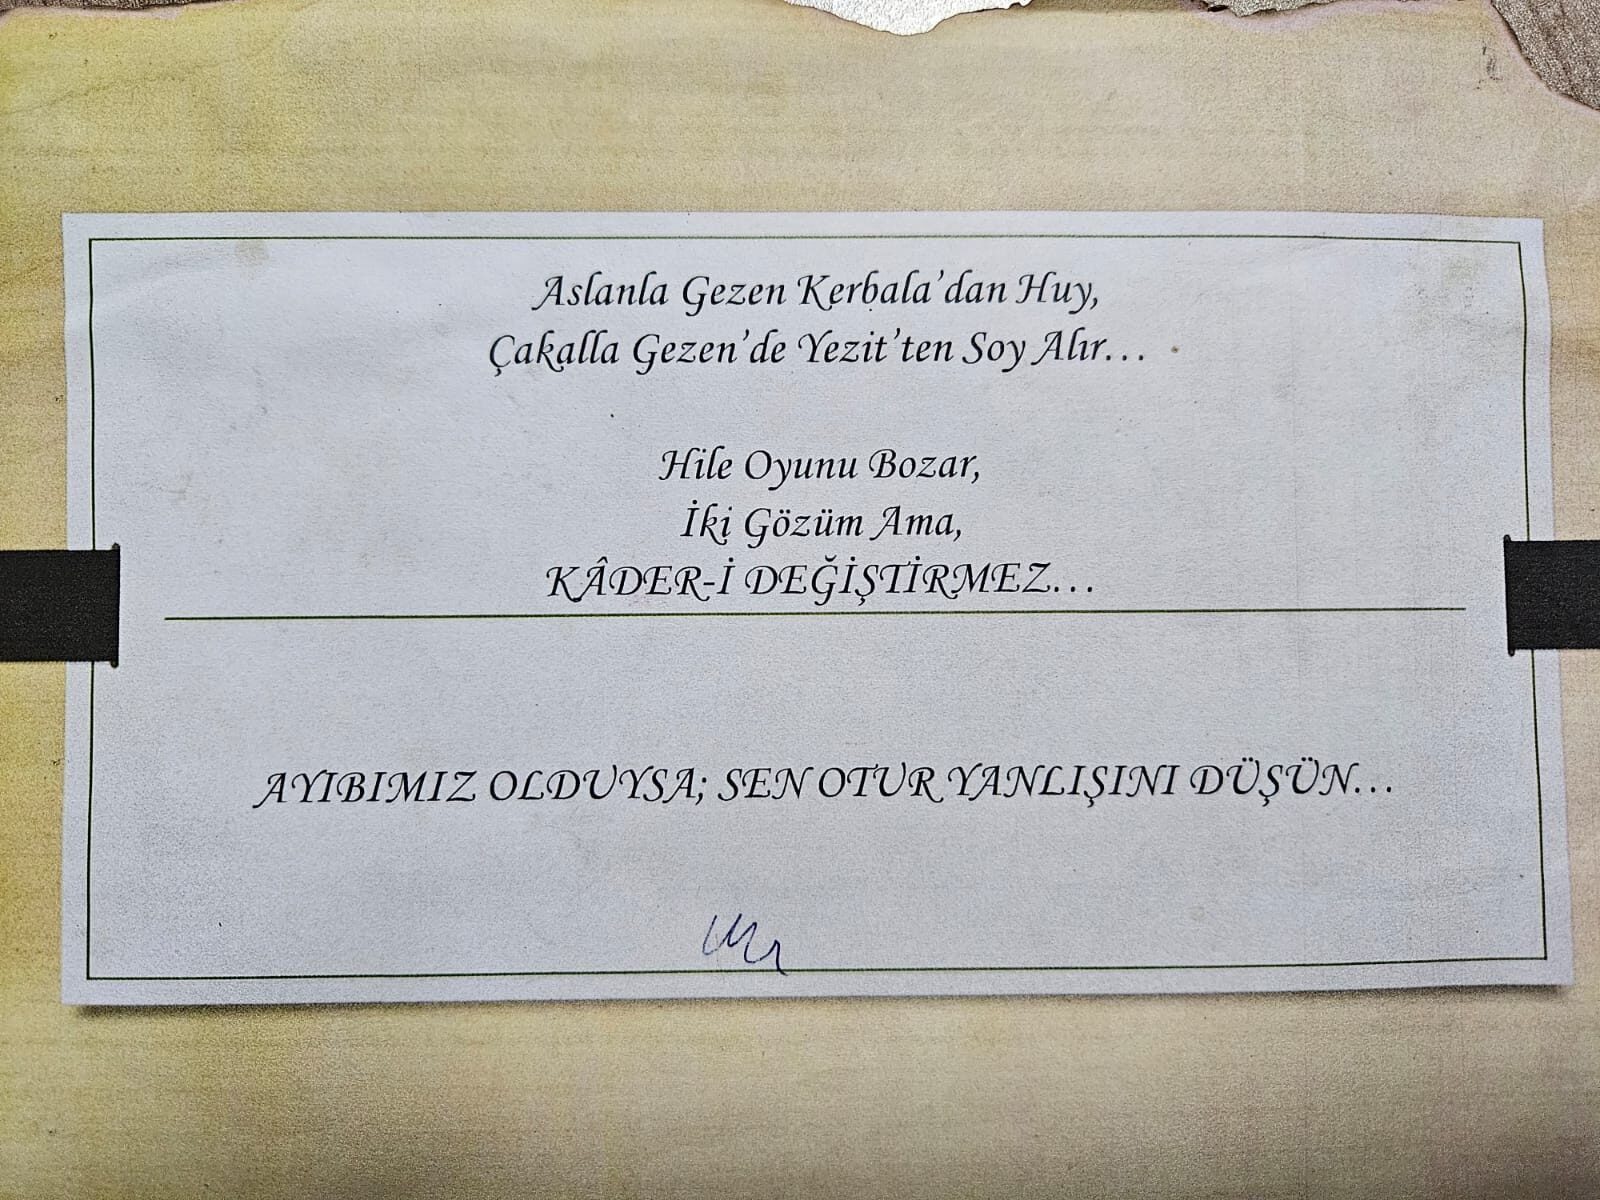 Aslanla Gezen Kerbala'dan Huy,
Çakalla Gezen'de Yezit'ten Soy Alır...
Hile Oyunu Bozar,
İki Gözüm Ama,
KÂDER-İ DEĞİŞTİRMEZ...
AYIBIMIZ OLDUYSA; SEN OTUR YANLIŞINI DÜŞÜN...